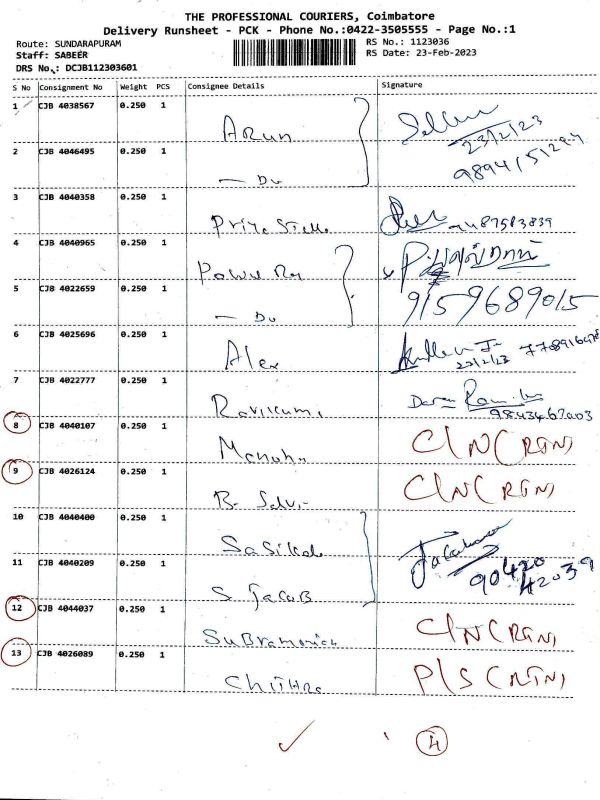 THE PROFESSIONAL COURIERS, Coimbatore
Delivery Runsheet - PCK - Phone No.:0422-3505555 - Page No.:1
Route: SUNDARAPURAM
RS No.: 1123036
Staff: SABEER
RS Date: 23-Feb-2023
DRS No.: DCJB112303601
S No Consignment No Weight PCS Consignee Details Signature
1 CJB 4038567 0.250 1 Arun
23/2/23
2 CJB 4046495 0.250 1 — Do
3 CJB 4040358 0.250 1 Priya
4 CJB 4040965 0.250 1
5 CJB 4022659 0.250 1 — Do 9159689015
6 CJB 4025696 0.250 1 Alex
23/2/23
7 CJB 4022777 0.250 1 Ravikumar
9843462003
8 CJB 4040107 0.250 1 C/N (RTN)
9 CJB 4026124 0.250 1 C/N (RTN)
10 CJB 4040400 0.250 1 Sasikala
11 CJB 4040209 0.250 1 S Jacob
90420
42039
12 CJB 4044037 0.250 1 C/N (RTN)
13 CJB 4026089 0.250 1 Chithra P/S (RTN)
4